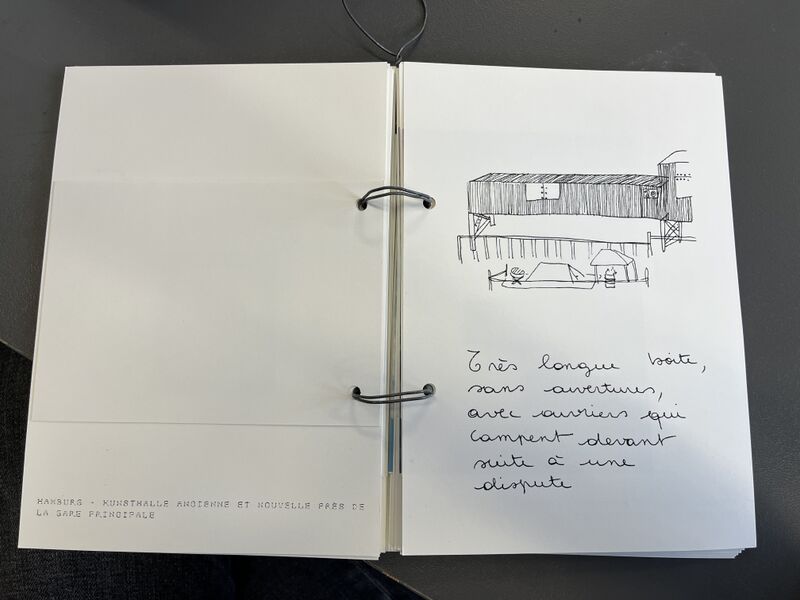 HAMBURG - KUNSTHALLE ANCIENNE ET NOUVELLE PRÈS DE
LA GARE PRINCIPALE
Très longue boite,
sans ouvertures,
avec ouvriers qui
campent devant
suite à une
dispute